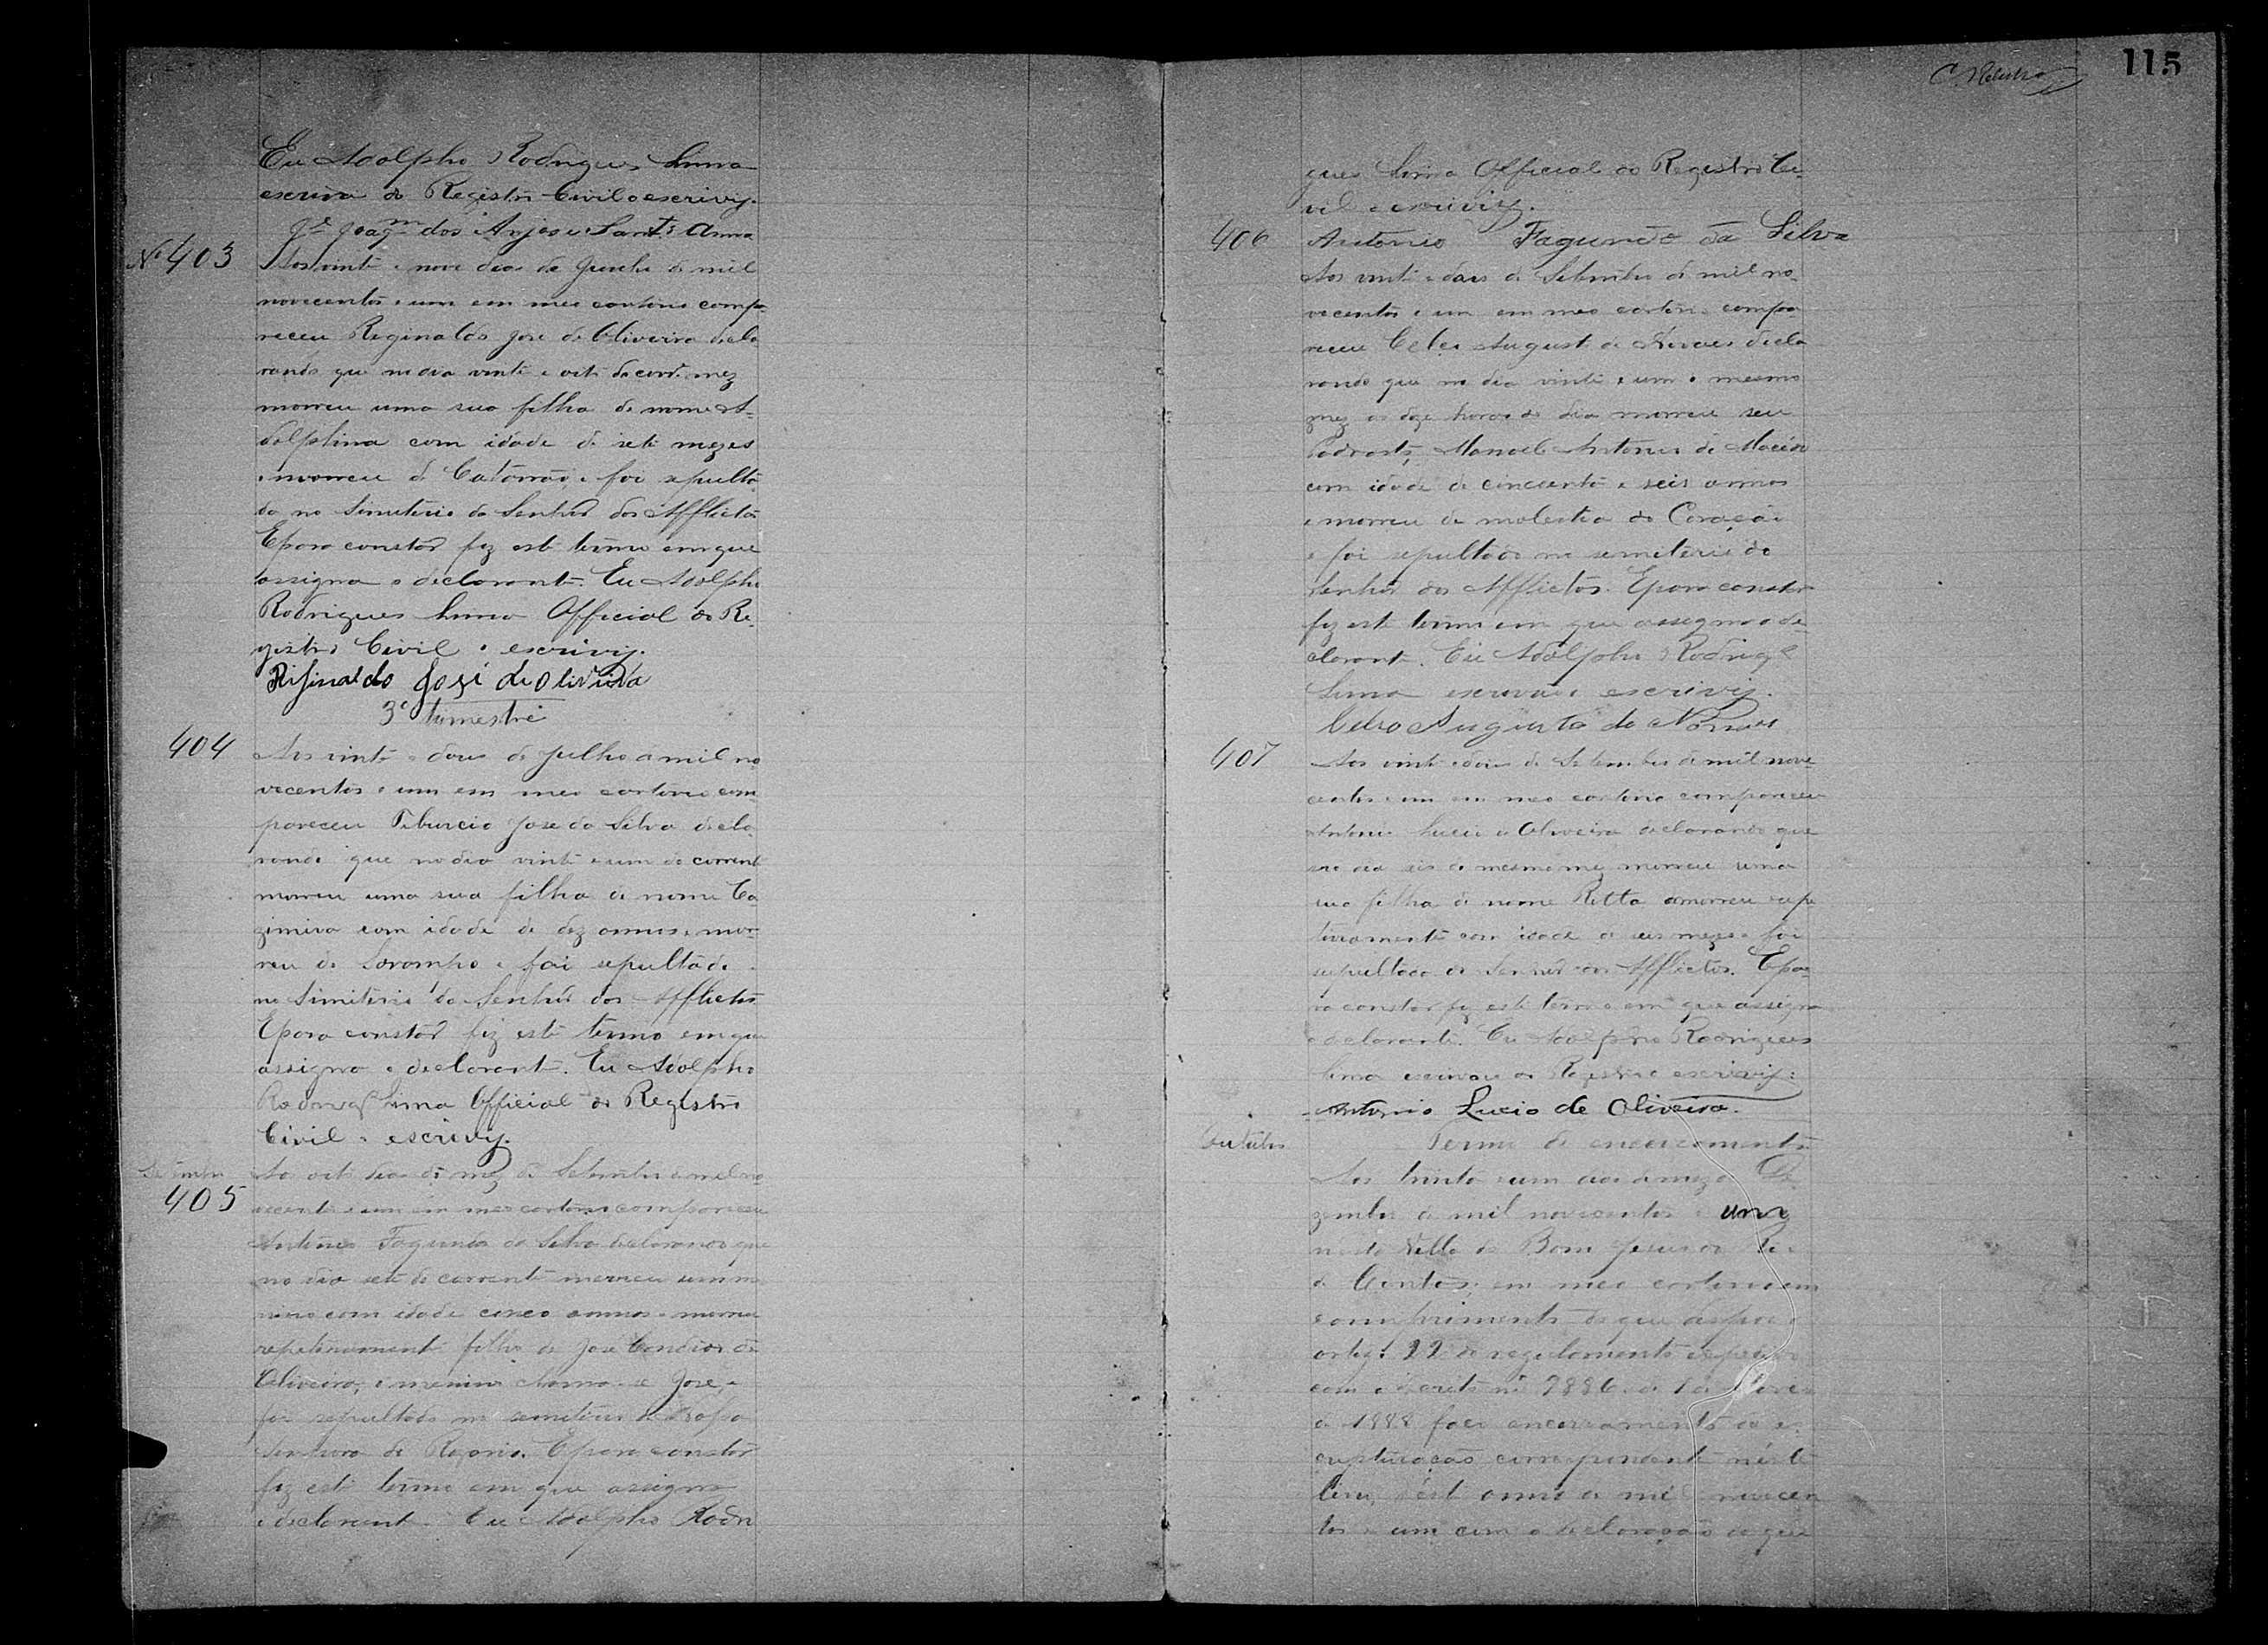 Eu Adolpho Rodrigues Lima
escrivão do Registro Civil o escrevy.
Joaqm dos Anjos e Sant'Anna
Nº 403
Aos vinte e nove dias de Junho de mil
novecentos e um em meu cartorio compa-
receu Reginaldo José de Oliveira decla
rando que no dia vinte e oito do corre mez
morreu uma sua filha de nome A-
dolphina com idade de sete mezes
e morreu de Catarrão, e foi sepulta
da no Simiterio do Senhor dos Afflictos
E para constar fiz este termo em que
assigna o declarante. Eu Adolpho
Rodrigues Lima Official do Re-
gistro Civil o escrivy.
Rijinaldo José de Oliveira
3º trimestre
404
Aos vinte e dous de Julho de mil no
vecentos e um em meu cartorio com
pareceu Tiburcio José da Silva decla
rando que no dia vinte e um do corrent
morreu uma sua filha de nome Ca
zimira com idade de dez annos e mor-
reu de Sarampo e foi sepultada
no Simiterio do Senhor dos Afflictos
E para constar fiz este termo em que
assigna o declarant. Eu Adolpho
Lima Official do Registro
Civil o escrevy.
Setembro
405
Ao oito dias do mez de Setembro de mil no
vecentos e um em meu cartorio compareceu
Antonio Fagundes da Silva declarando que
no dia sete do corrente morreu um me
nino com idade cinco annos e morreu
repetinament filho de José Candido de
Oliveira, o menino chama-se José, e
foi sepultado no semiterio de Nossa
Senhora do Rozario. E para constar
fiz este termo em que assigna
o declarant. Eu Adolpho Rodri
115
gues Lima Official do Registro Ci-
vil o escrivy.
406
Antonio Fagundes da Silva
Aos vinte e dous de Setembro de mil no-
vecentos e um em meu cartorio compa
receu Celso Augusto de Novaes decla
rando que no dia vinte e um o mesmo
mez as doze horas do dia morreu seu
Padrasto, Manoel Antonio de Macedo
com idade de cincoenta e seis annos
e morreu de molestia do Coração
e foi sepultado no semiterio do
Senhor dos Afflictos. E para constar
fiz este termo em que assigna o de
clarante. Eu Adolpho Rodrigs
Lima escrivão o escrivy.
Celso Augusto de Novaes
407
Aos vinte e dous de Setembro de mil nove
centos e um em meu cartorio compareceu
Antonio Lucio de Oliveira declarando que
no dia seis do mesmo mez morreu uma
sua filha de nome Ritta e morreu repe
tinamente com idade de seis mezes e foi
sepultada do Senhor dos Afflictos. E pa-
ra constar fiz este termo em que assigna
o declarante. Eu Adolpho Rodrigues
Lima escrivão do Registro o escrivy:
Antonio Lucio de Oliveira.
Outubro
Termo de encerramento
Aos trinta e um dias do mez de De
zembro de mil novecentos e um
nesta Villa de Bom Jesus do Rio
de Contas, em meu cartorio em
comprimento do que dispoe o
artigo 22 do regulamento
com o decreto nº 9886 de 7 de Março
de 1888 faço encerramento da es
cripturação correspondente néste
livro, dést anno de mil novecen
tos e um com a declaração de que